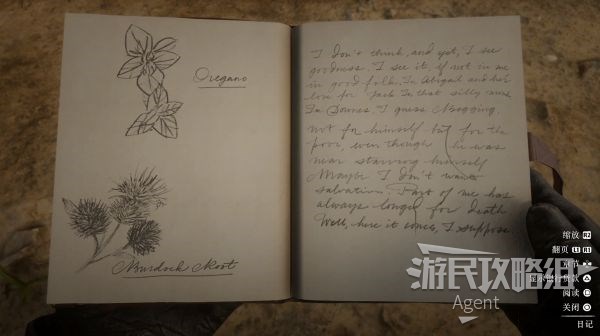 Oregano
Burdock Root
I don't think, and yet, I see
goodness. I see it, if not in me
in good folks. In Abigail and her
love for Jack. In that silly nurse
In Downes, I guess. Begging.
not for himself but for the
poor, even though he was
near starving himself
Maybe I don't want
salvation. Part of me has
always longed for death
Well, here it comes, I suppose
缩放 R2
翻页 L1 R1
阅读
关闭
日记
游民攻略组
Agent